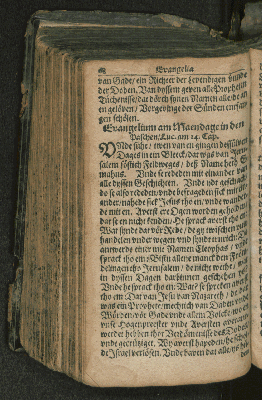 Euangelia
van Gade / ein Richter der Levendigen vnde
der Doden. Van dyssem geven alle Propheten
Tüchenisse / dat dörch synen Namen alle / de an
en gelöven / Vorgevinge der Sünden entfan-
gen schölen.
Euangelium am Maendage in dem
Paschen / Luc. am 24. Cap.
VNde sühe / twen van en gingen
Dages in ein Bleck / dat was van
salem söstich Feldweges / des Name
mahus. Vnde se redeten mit einander van
alle dyssen Geschichten. Vnde
do se also rededen / vnde befrageden sick mit
ander / nahede sick Jesus tho en / vnde wandel-
de mit en. Averst ere Ogen worden geholden
dat se en nicht kenden. He sprack averst tho en
Wat synt dat vör Rede / de gy twischen
handelen vnder wegen / vnd synt
antwerde einer mit Namen Cleophas / vnde
sprack tho em: Bistu allene manck den
delingen tho Jerusalem / de nicht wethe / wat
in dyssen Dagen darbinnen geschen
Vnde he sprack tho en: Wat? se spreken averst
tho em: Dat van Jesu van Nazareth /
was ein Prophete / mechtich van Daden
Worden / vör Gade vnde allem Volcke /
vnse Hogepreester vnde
vnde gecrütziget. Wy averst hapeden / he
de Israel verlösen. Vnde baven dat alle /